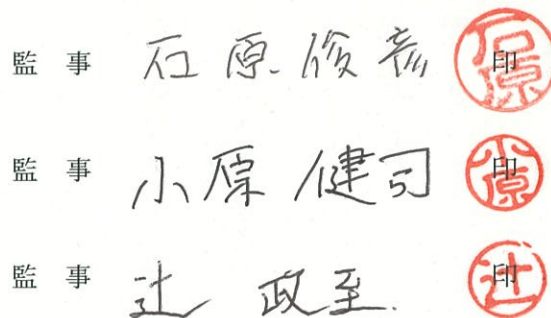 監 事 石原俊彦 印
監 事 小原健司 印
監 事 辻 政至 印